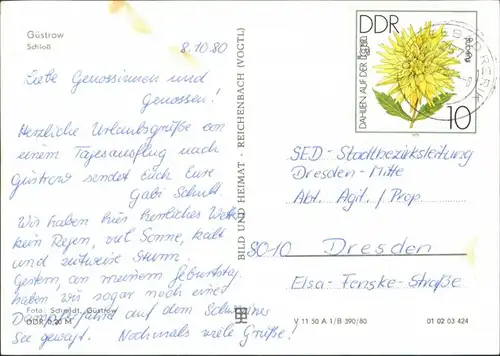 Güstrow
Schloß
8.10.80
Liebe Genossinnen und
Genossen!
Herzliche Urlaubsgrüße von
einem Tagesausflug nach
Güstrow sendet Euch Eure
Gabi Schult.
Wir haben hier herrliches Wetter
kein Regen, viel Sonne, kalt
und zeitweise Sturm.
Gestern, an meinem Geburtstag
haben wir sogar noch eine
Dampferfahrt auf dem Schweriner
See gewagt. Nochmals viele Grüße!
Foto: Schmidt, Güstrow
DDR 0,20 M
BILD UND HEIMAT · REICHENBACH (VOGTL)
DDR
DAHLIEN AUF DER
10
SED-Stadtbezirksleitung
Dresden-Mitte
Abt. Agit./Prop.
8010 Dresden
Elsa-Fenske-Straße
V 11 50 A 1/B 390/80
01 02 03 424